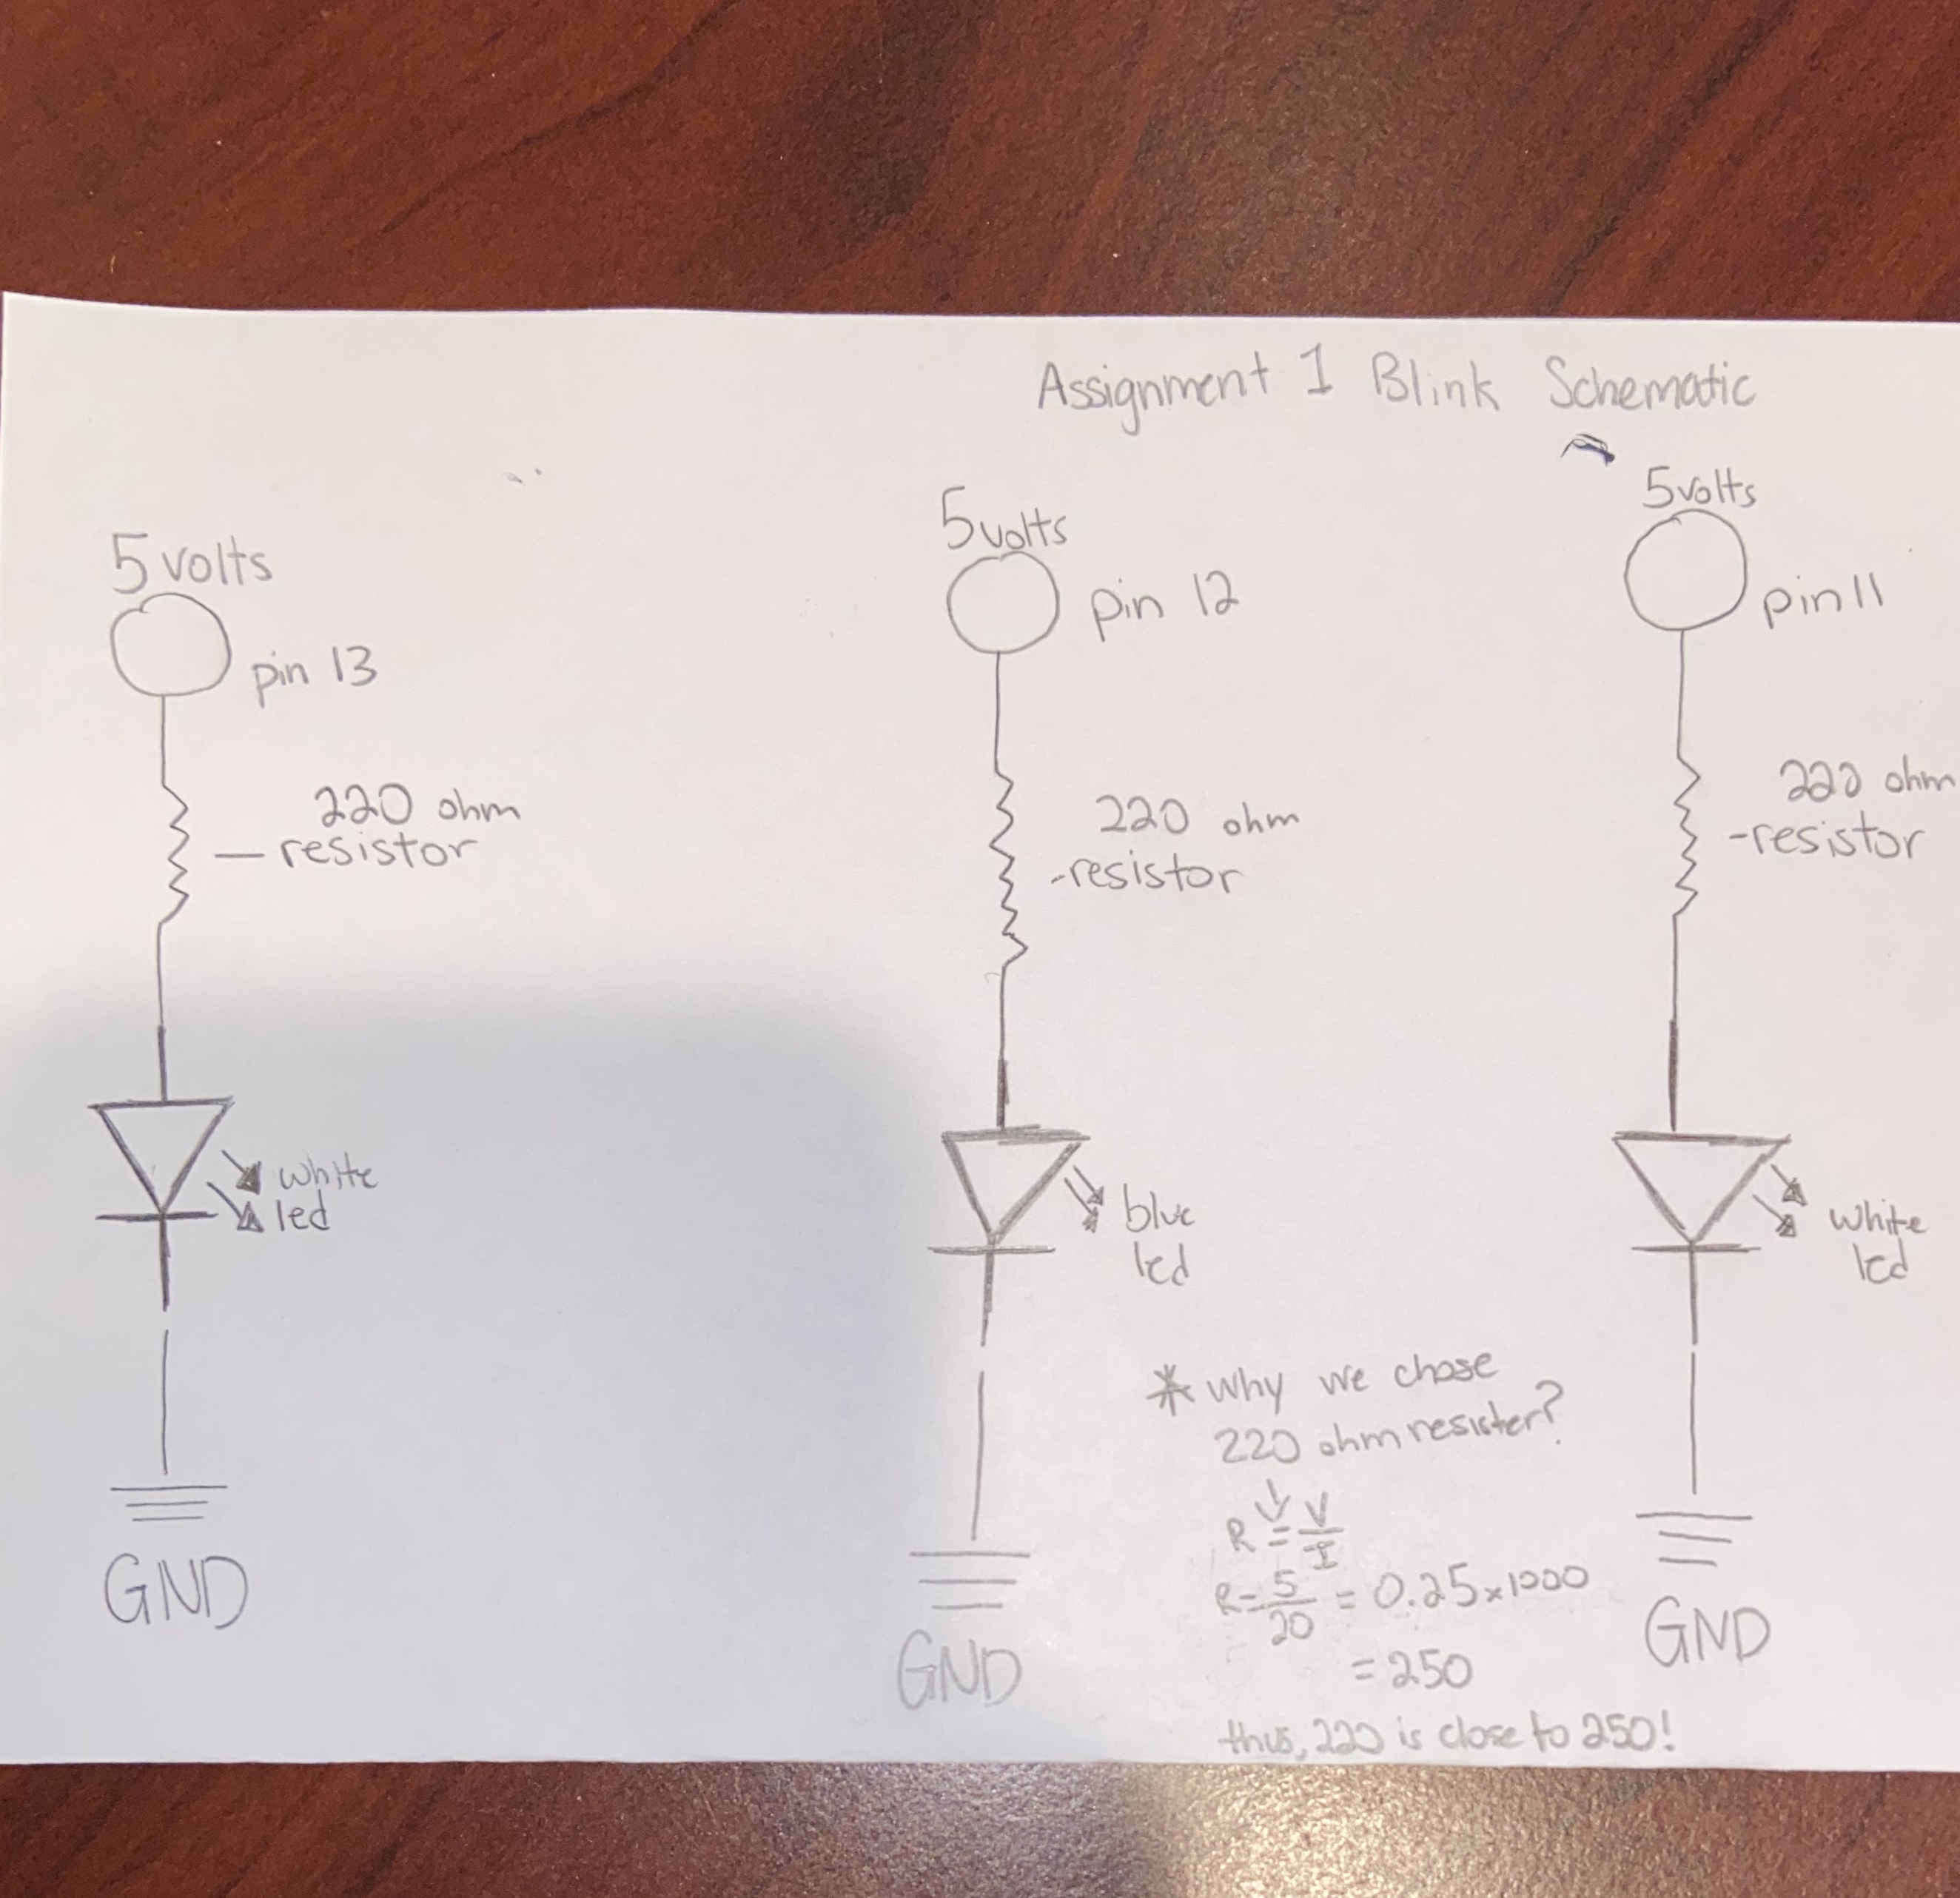 Assignment 1 Blink Schematic
5 volts
pin 13
220 ohm
resistor
white
led
GND
5volts
pin 12
220 ohm
-resistor
blue
led
GND
5volts
pin 11
220 ohm
-resistor
white
led
GND
* why we chose
220 ohm resister?
R = V/I
R = 5/20 = 0.25x1000
= 250
thus, 220 is close to 250!